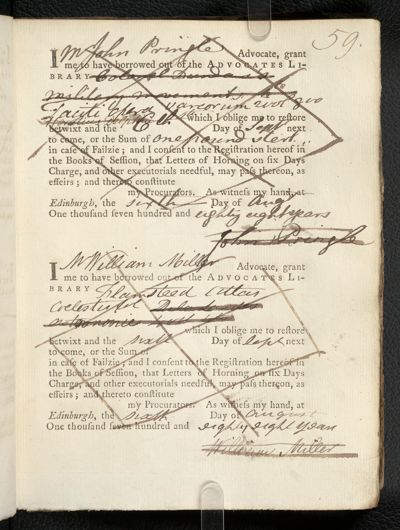 59.
I Mr John Pringle Advocate, grant
me to have borrowed out of the ADVOCATES LI-
BRARY
military movements
Taciti opera variorum 2 vol 8vo
which I oblige me to reſtore
betwixt and the 6th Day of Sept next
to come, or the Sum of one pound sterl.
in caſe of Failzie; and I conſent to the Regiſtration hereof in
the Books of Seſſion, that Letters of Horning on ſix Days
Charge, and other executorials needful, may paſs thereon, as
effeirs; and thereto conſtitute
my Procurators. As witneſs my hand, at
Edinburgh, the sixth Day of Augt
One thouſand ſeven hundred and eighty eight years
John Pringle
I Mr William Miller Advocate, grant
me to have borrowed out of the ADVOCATES LI-
BRARY Flamsteed Atlas
Coelestis fol
which I oblige me to reſtore
betwixt and the sixth Day of Sept next
to come, or the Sum of
in caſe of Failzie; and I conſent to the Regiſtration hereof in
the Books of Seſſion, that Letters of Horning on ſix Days
Charge, and other executorials needful, may paſs thereon, as
effeirs; and thereto conſtitute
my Procurators. As witneſs my hand, at
Edinburgh, the sixth Day of August
One thouſand ſeven hundred and eighty eight years
William Miller